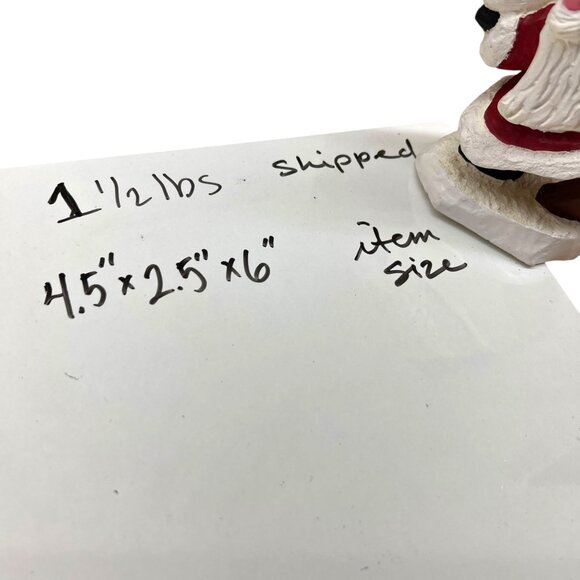 1 1/2 lbs shipped
4.5" x 2.5" x 6" item size